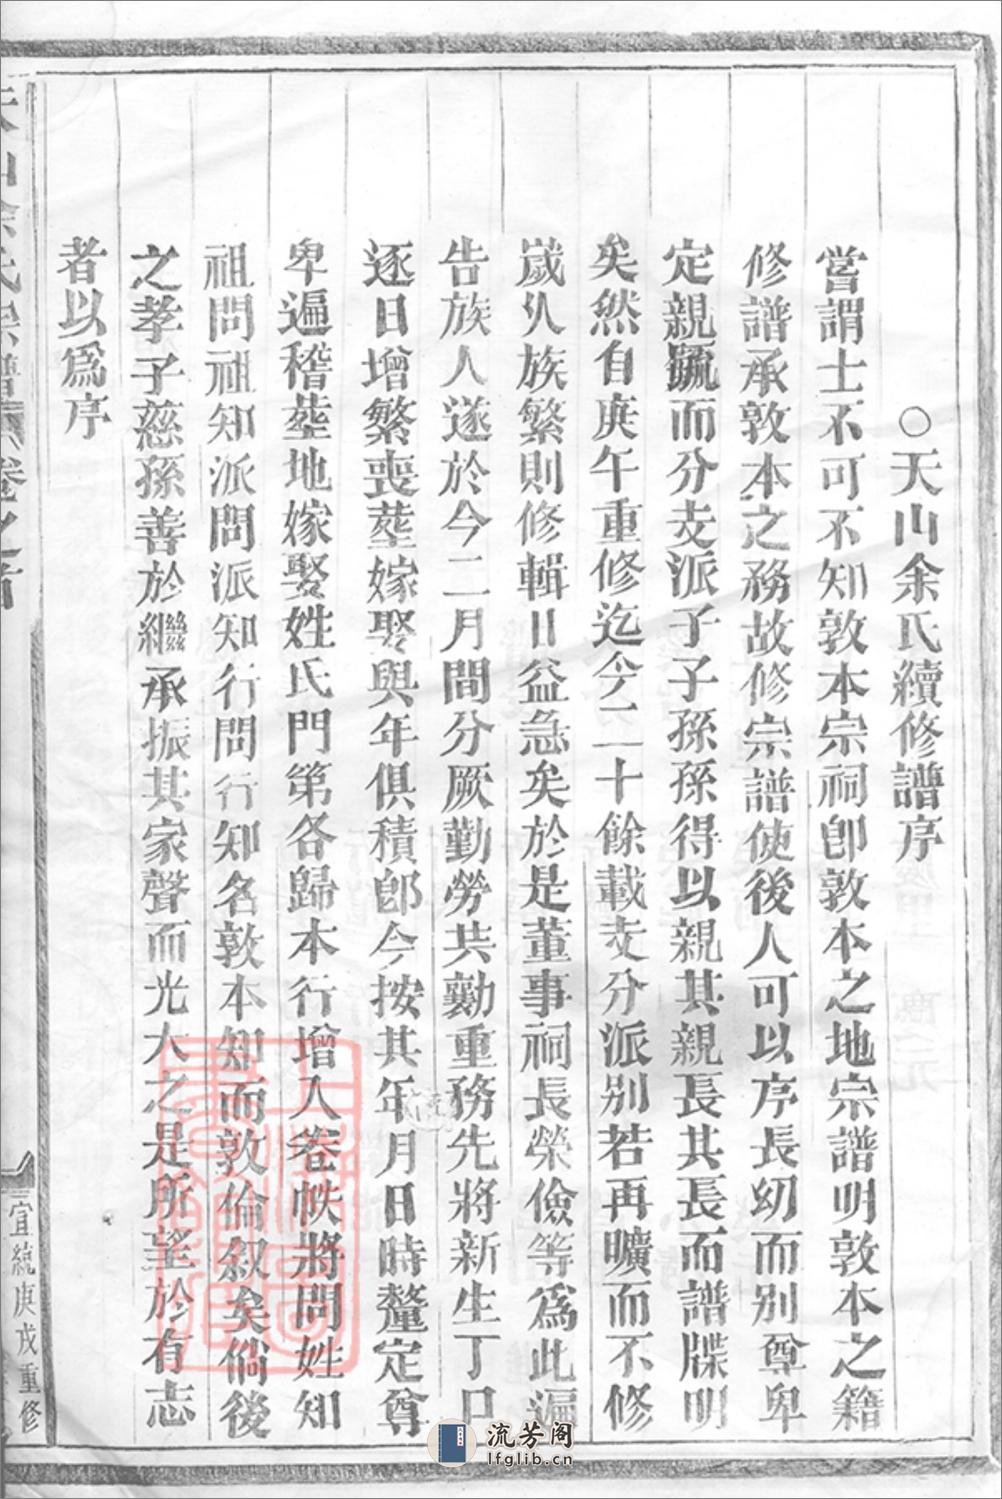 ○天山余氏續修譜序
嘗謂士不可不知敦本宗祠卽敦本之地宗譜明敦本之籍
修譜承敦本之務故修宗譜使後人可以序長幼而别尊卑
定親䟽而分支派子子孫孫得以親其親長其長而譜牒明
矣然自庚午重修迄今二十餘載支分派别若再曠而不修
歲久族繁則修輯日益急矣於是董事祠長榮儉等爲此遍
告族人遂於今二月間分厥勤勞共勷重務先將新生丁口
逐日增繁喪塟嫁娶與年俱積卽今按其年月日時釐定尊
卑遍稽塟地嫁娶姓氏門第各歸本行增入卷帙將問姓知
祖問祖知派問派知行問行知名敦本知而敦倫叙矣倘後
之孝子慈孫善於繼承振其家聲而光大之是所望於有志
者以爲序
天山余氏宗譜 卷之首
宣統庚戌重修
流芳阁
lfglib.cn